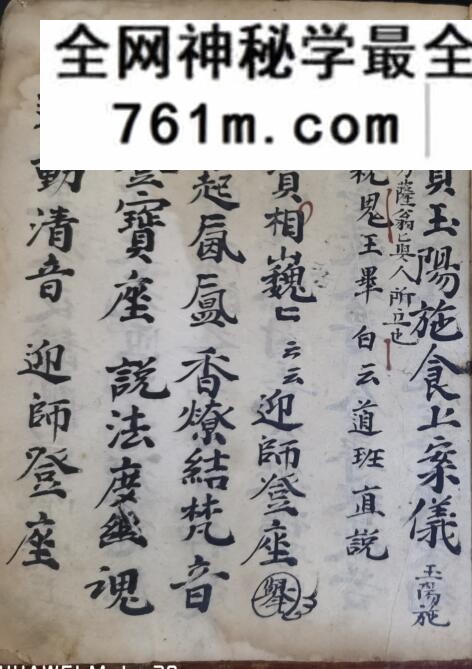 全网神秘学最全
761m.com
玉陽施食上案儀 玉陽施
薩翁真人所立也
鬼王畢 白云道班直説
相巍〻云云迎師登座 舉
起氤氳香燎結梵音
寶座 説法度幽魂
動清音 迎師登座